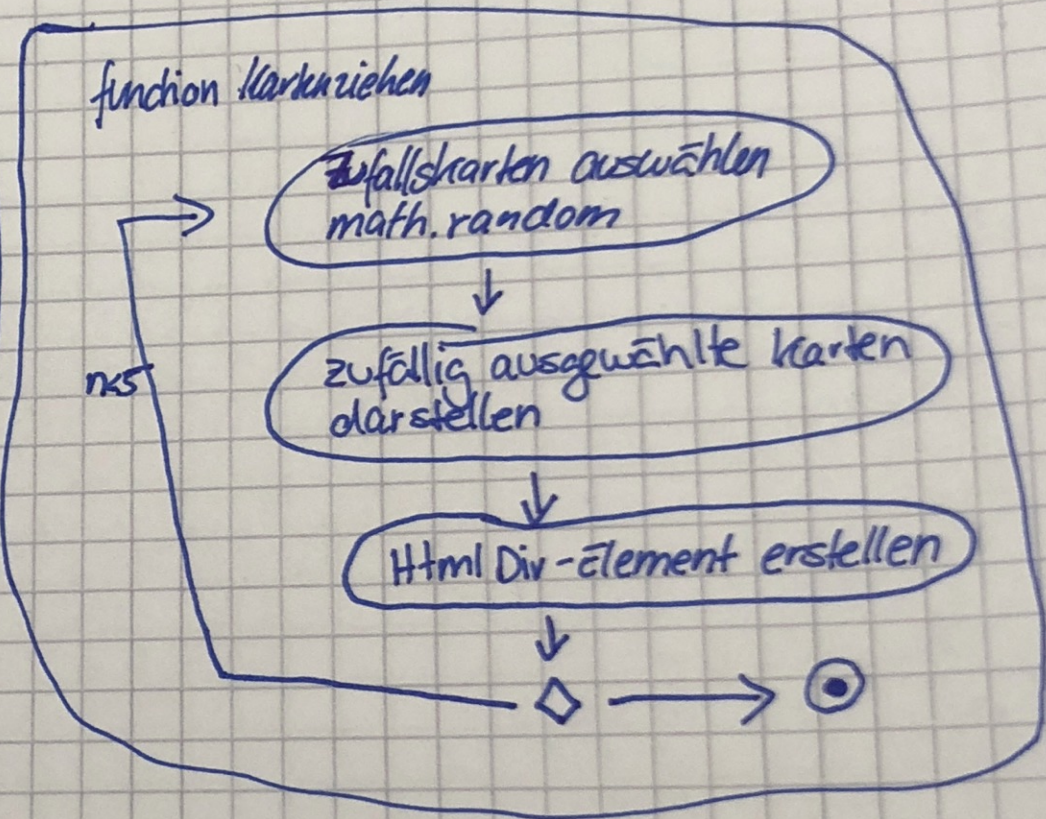 function Kartenziehen
Zufallskarten auswählen
math.random
zufällig ausgewählte Karten
darstellen
n<5
Html Div-Element erstellen